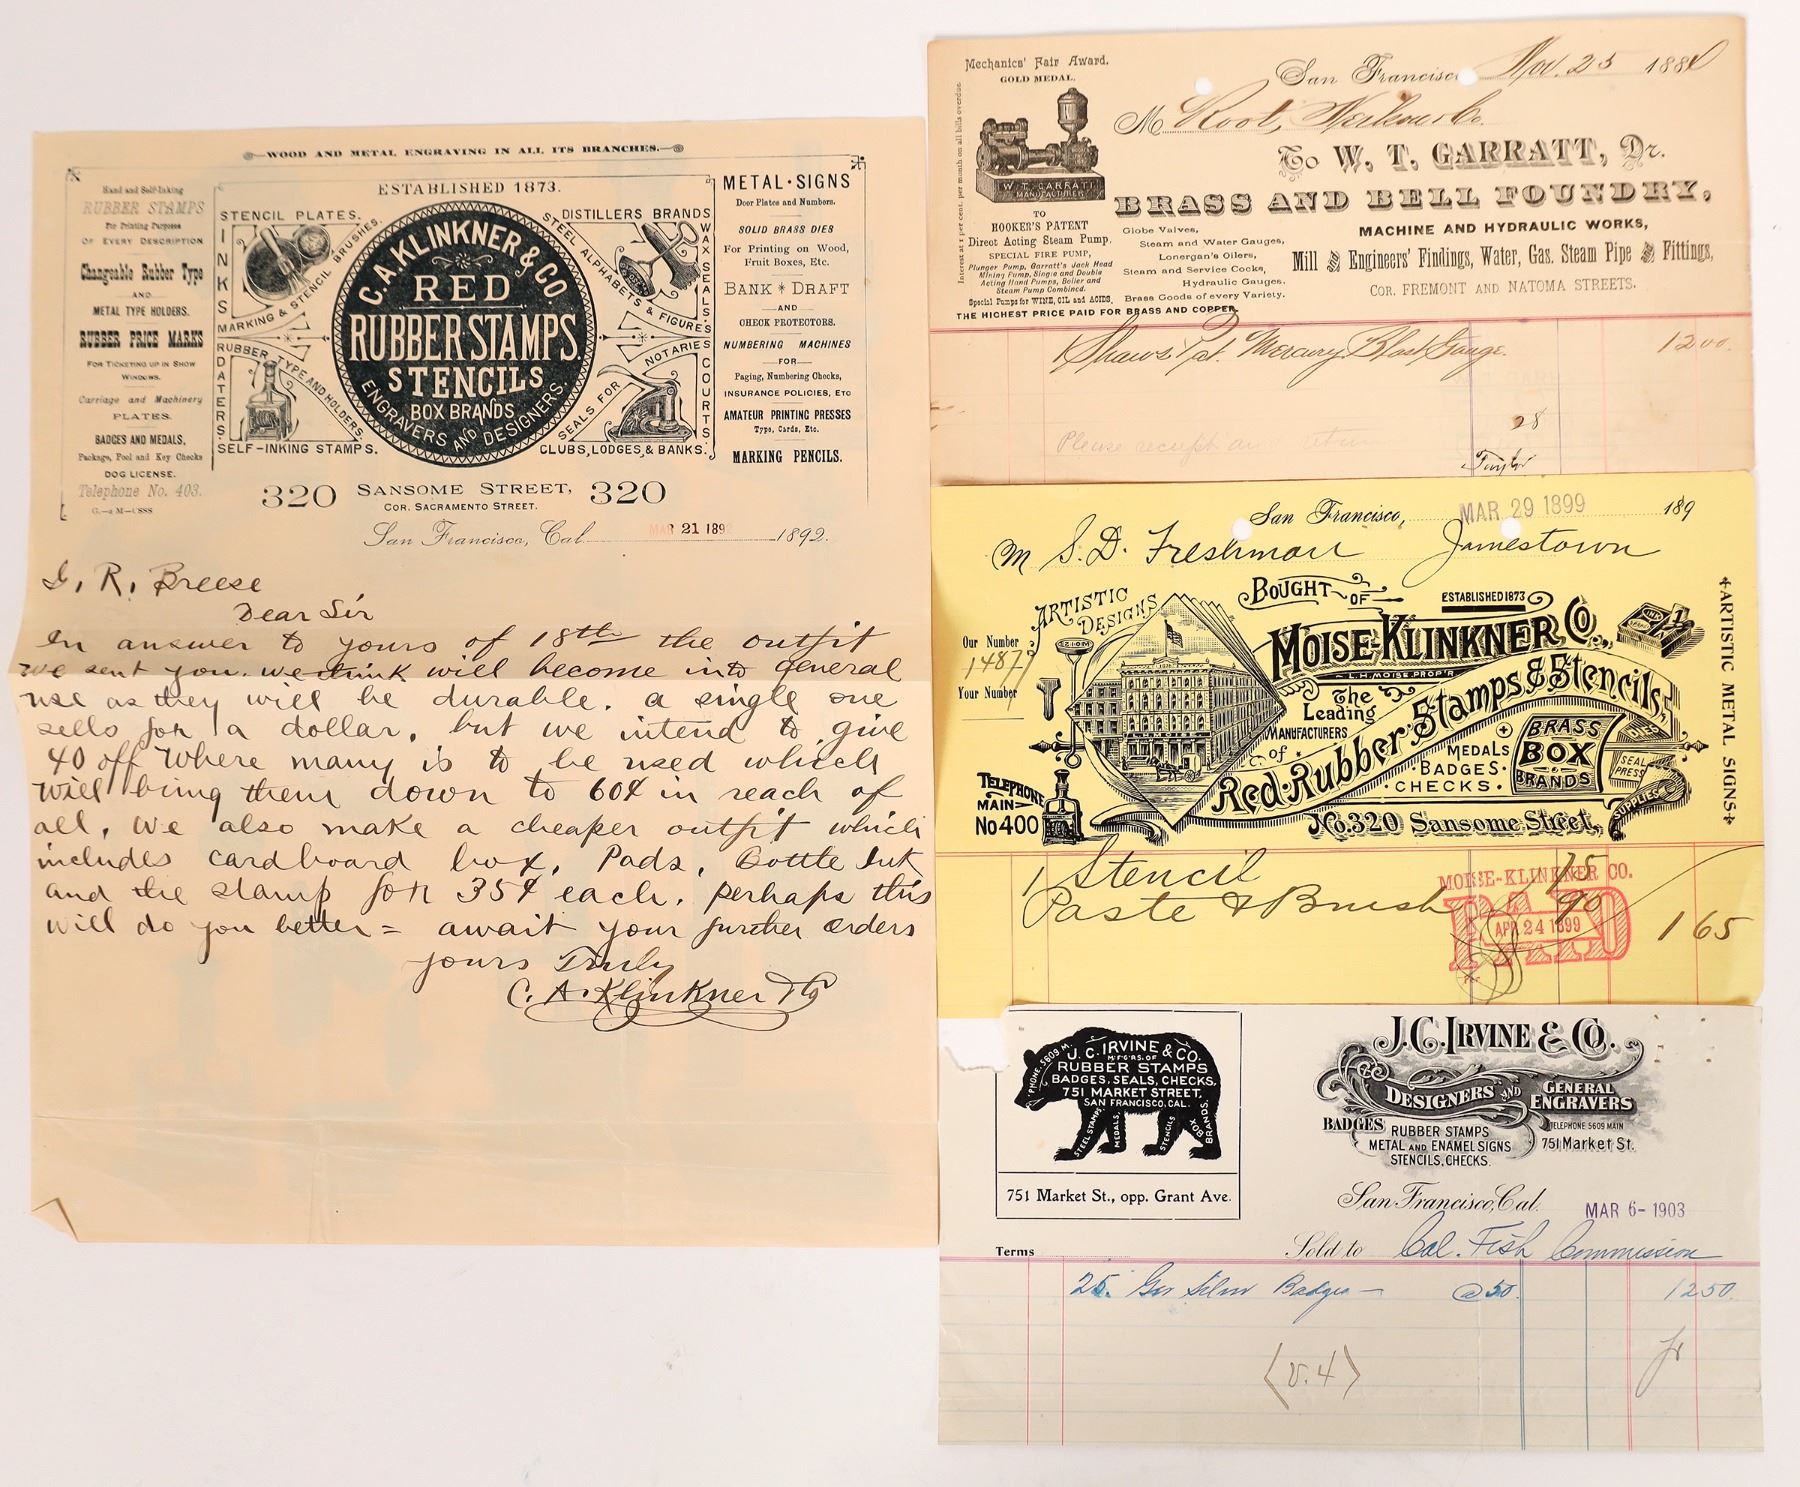 WOOD AND METAL ENGRAVING IN ALL ITS BRANCHES.
Hand and Self-Inking
RUBBER STAMPS
For Printing Purposes
OF EVERY DESCRIPTION
Changeable Rubber Type
AND
METAL TYPE HOLDERS.
RUBBER PRICE MARKS
FOR TICKETING UP IN SHOW
WINDOWS.
Carriage and Machinery
PLATES.
BADGES AND MEDALS,
Package, Pool and Key Checks
DOG LICENSE.
Telephone No. 403.
ESTABLISHED 1873.
STENCIL PLATES.
INKS
MARKING & STENCIL BRUSHES.
DISTILLERS BRANDS
STEEL ALPHABETS & FIGURES
WAX SEALS.
C.A. KLINKNER & CO.
RED
RUBBER STAMPS.
STENCILS
BOX BRANDS
ENGRAVERS AND DESIGNERS.
RUBBER TYPE AND HOLDERS.
DATERS.
SELF-INKING STAMPS.
SEALS FOR NOTARIES
COURTS.
CLUBS, LODGES, & BANKS.
METAL SIGNS
Door Plates and Numbers.
SOLID BRASS DIES
For Printing on Wood,
Fruit Boxes, Etc.
BANK * DRAFT
—AND—
CHECK PROTECTORS.
NUMBERING MACHINES
—FOR—
Paging, Numbering Checks,
INSURANCE POLICIES, ETC
AMATEUR PRINTING PRESSES
Type, Cards, Etc.
MARKING PENCILS.
320 SANSOME STREET, 320
COR. SACRAMENTO STREET.
San Francisco, Cal. MAR 21 1892 1892.
G. R. Breese
Dear Sir
In answer to yours of 18th the outfit
we sent you, we think will become into general
use as they will be durable. a single one
sells for a dollar, but we intend to give
40 off where many is to be used which
will bring them down to 60¢ in reach of
all, We also make a cheaper outfit which
includes cardboard box, Pads, Bottle Ink
and the stamp for 35¢ each, perhaps this
will do you better = await your further orders
yours Truly
C. A. Klinkner & Co
Mechanics' Fair Award.
GOLD MEDAL.
W. T. GARRATT
MANUFACTURER
TO
HOOKER'S PATENT
Direct Acting Steam Pump.
SPECIAL FIRE PUMP,
Plunger Pump, Garratt's Jack Head
Mining Pump, Single and Double
Acting Hand Pumps, Boiler and
Steam Pump Combined.
Special Pumps for WINE, OIL and ACIDS.
THE HIGHEST PRICE PAID FOR BRASS AND COPPER.
Interest at 1 per cent. per month on all bills overdue.
San Francisco Nov. 25 188
M Root, Co.
To W. T. GARRATT, Dr.
BRASS AND BELL FOUNDRY,
MACHINE AND HYDRAULIC WORKS,
Mill and Engineers' Findings, Water, Gas, Steam Pipe and Fittings,
COR. FREMONT AND NATOMA STREETS.
Globe Valves,
Steam and Water Gauges,
Lonergan's Oilers,
Steam and Service Cocks,
Hydraulic Gauges,
Brass Goods of every Variety.
1 Shaw's Pat. Mercury Blast Gauge. 12 00
28
Please receipt
San Francisco, MAR 29 1899 189
M S. D. Freshman Jamestown
Our Number
14877
Your Number
ARTISTIC
DESIGNS
BOUGHT OF
ESTABLISHED 1873
MOISE-KLINKNER CO.,
L.H. MOISE. PROP'R
The Leading
MANUFACTURERS
of
Red-Rubber-Stamps & Stencils,
MEDALS
BADGES.
CHECKS.
BRASS
BOX
BRANDS
DIES
SEAL
PRESS
SUPPLIES
ARTISTIC METAL SIGNS
TELEPHONE
MAIN
No 400
No. 320 Sansome Street,
1 Stencil 75
Paste & Brush 90 1 65
MOISE-KLINKNER CO.
PAID
APR 24 1899
PHONE. 5609 M.
J. C. IRVINE & CO.
M'F'G'RS. OF
RUBBER STAMPS
BADGES, SEALS, CHECKS,
751 MARKET STREET,
SAN FRANCISCO, CAL.
STEEL STAMPS
MEDALS,
STENCILS
BOX BRANDS.
751 Market St., opp. Grant Ave.
J.C. IRVINE & CO.
DESIGNERS AND GENERAL
ENGRAVERS
BADGES
RUBBER STAMPS
METAL AND ENAMEL SIGNS
STENCILS, CHECKS.
TELEPHONE 5609 MAIN
751 Market St.
San Francisco, Cal. MAR 6- 1903
Terms
Sold to Cal. Fish Commission
25 Ger Silver Badges — @ 50. 12 50.
(v. 4)